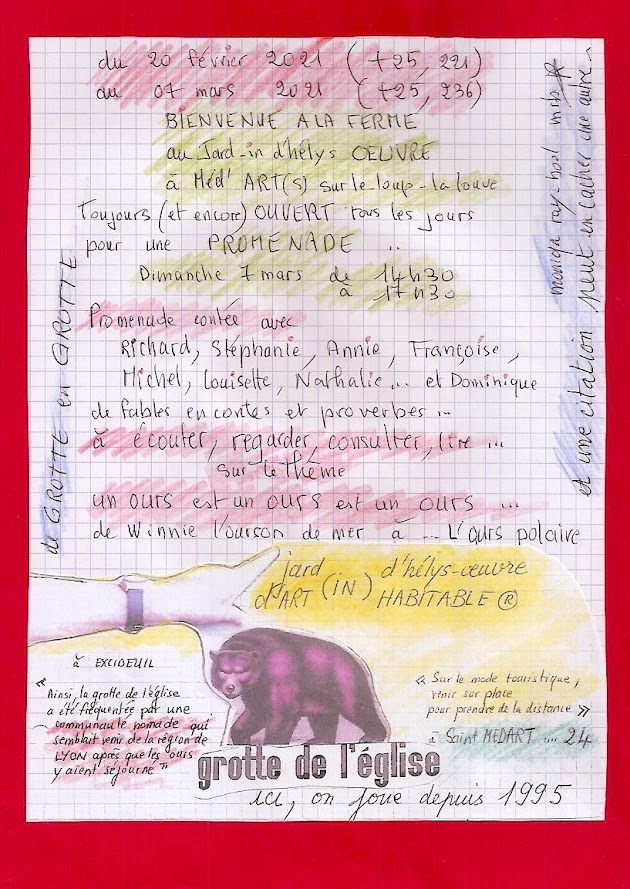 du 20 février 2021 (+25, 221)
au 07 mars 2021 (+25, 236)
BIENVENUE A LA FERME
au Jard-in d'hélys OEUVRE
à Méd' ART(s) sur-le-loup-la louve
Toujours (et encore) OUVERT tous les jours
pour une PROMENADE ..
Dimanche 7 mars de 14h30
à 17h30
Promenade contée avec
Richard, Stéphanie, Annie, Françoise,
Michel, Louisette, Nathalie... et Dominique
de fables en contes et proverbes ...
à écouter, regarder, consulter, lire ...
sur le thème
un ours est un ours est un ours ...
de Winnie l'ourson de mer à ... L'ours polaire
de GROTTE en GROTTE
moniqa ray-bool mrb
et une citation peut en cacher une autre..
jard d'hélys-oeuvre
d'ART (IN) HABITABLE ®
à EXCIDEUIL
" Ainsi, la grotte de l'église
a été fréquentée par une
communauté nomade qui
semblait venir de la région de
LYON après que les ours
y aient séjourné "
« Sur le mode touristique,
venir sur place
pour prendre de la distance »
à Saint MEDART .... 24
grotte de l'église
ici, on joue depuis 1995